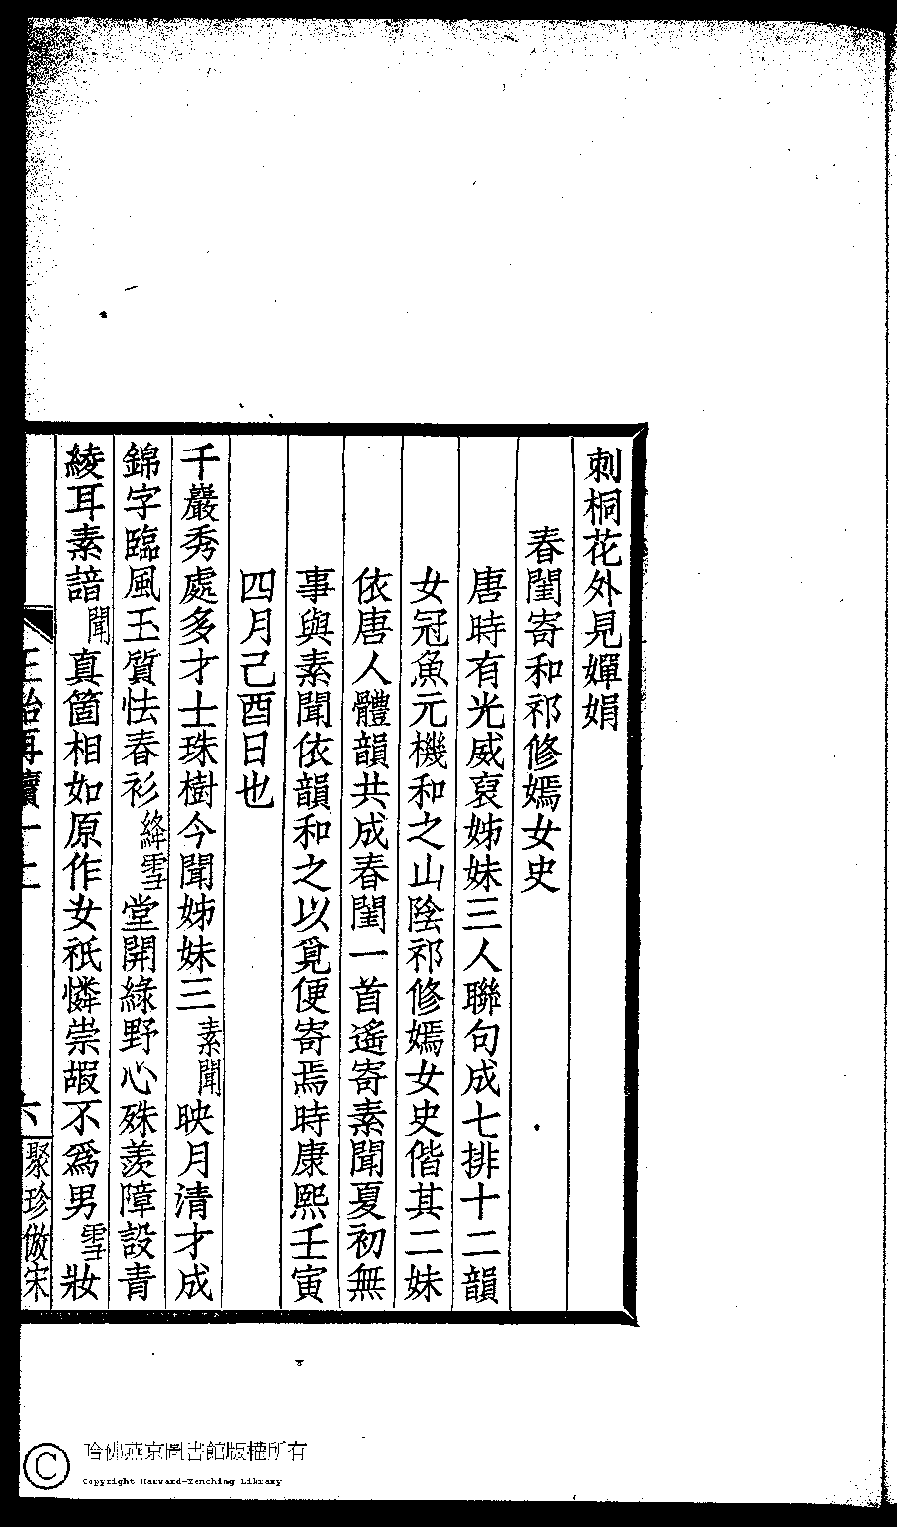 刺桐花外見嬋娟
春閨寄和祁修嫣女史
唐時有光威裒姊妹三人聯句成七排十二韻
女冠魚元機和之山陰祁修嫣女史偕其二妹
依唐人體韻共成春閨一首遙寄素聞夏初無
事與素聞依韻和之以覓便寄焉時康熙壬寅
四月己酉日也
千巖秀處多才士珠樹今聞姊妹三素聞映月清才成
錦字臨風玉質怯春衫絳雪堂開綠野心殊羨障設青
綾耳素諳聞真箇相如原作女祇憐崇嘏不為男雪妝
再續
六
聚珍倣宋
哈佛燕京圖書館版權所有
Copyright Harvard-Yenching Library